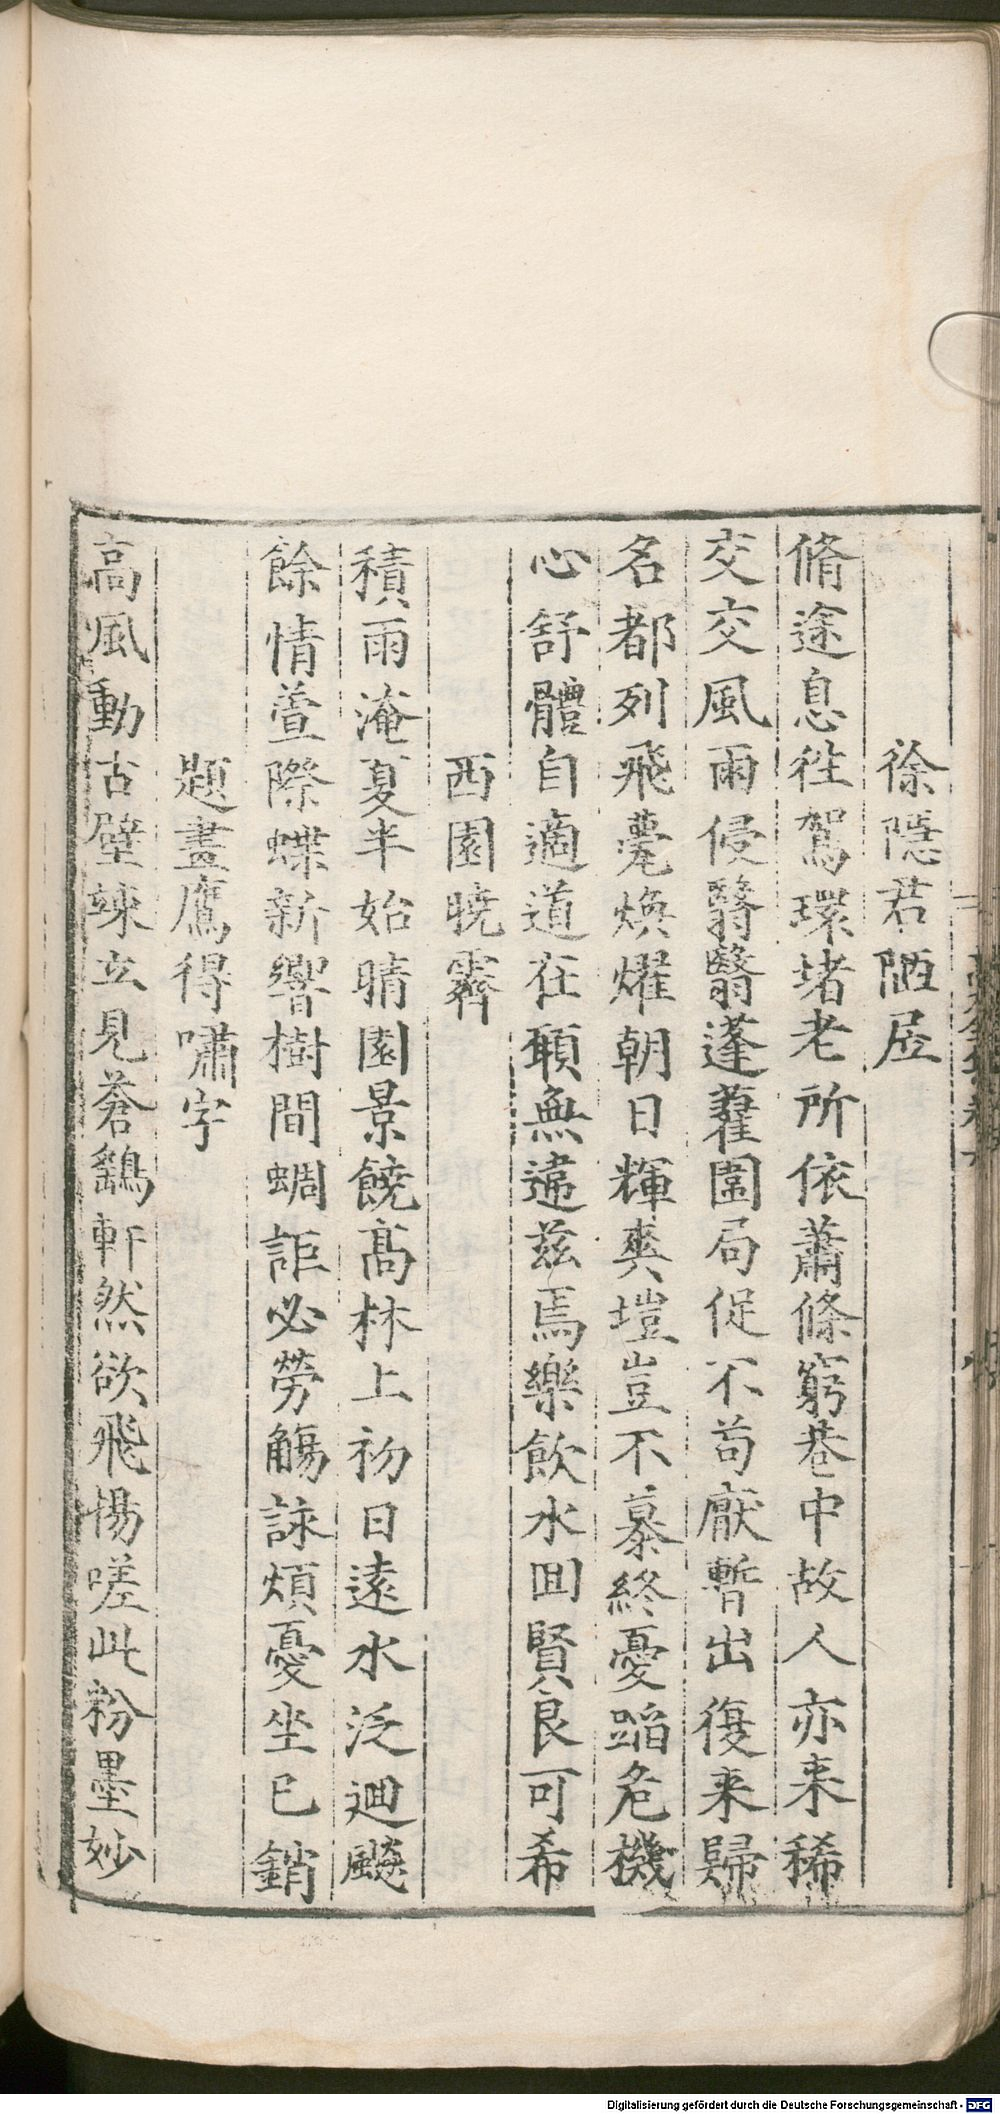 徐隱君陋居
脩途息徃駕環堵老所依蕭條窮巷中故人亦来稀
交交風雨侵翳翳蓬藋圍局促不苟厭暫出復来歸
名都列飛甍煥燿朝日輝爽塏豈不慕終憂蹈危機
心舒體自適道在願無違茲焉樂飲水囬賢良可希
西園曉霽
積雨淹夏半始晴園景饒高林上初日遠水泛迴飈
餘情萱際蝶新響樹間蜩詎必勞觴詠煩憂坐已銷
題畫鷹得嘯字
高風動古壁竦立見蒼鷂軒然欲飛揚嗟此粉墨妙
Digitalisierung gefördert durch die Deutsche Forschungsgemeinschaft - DFG